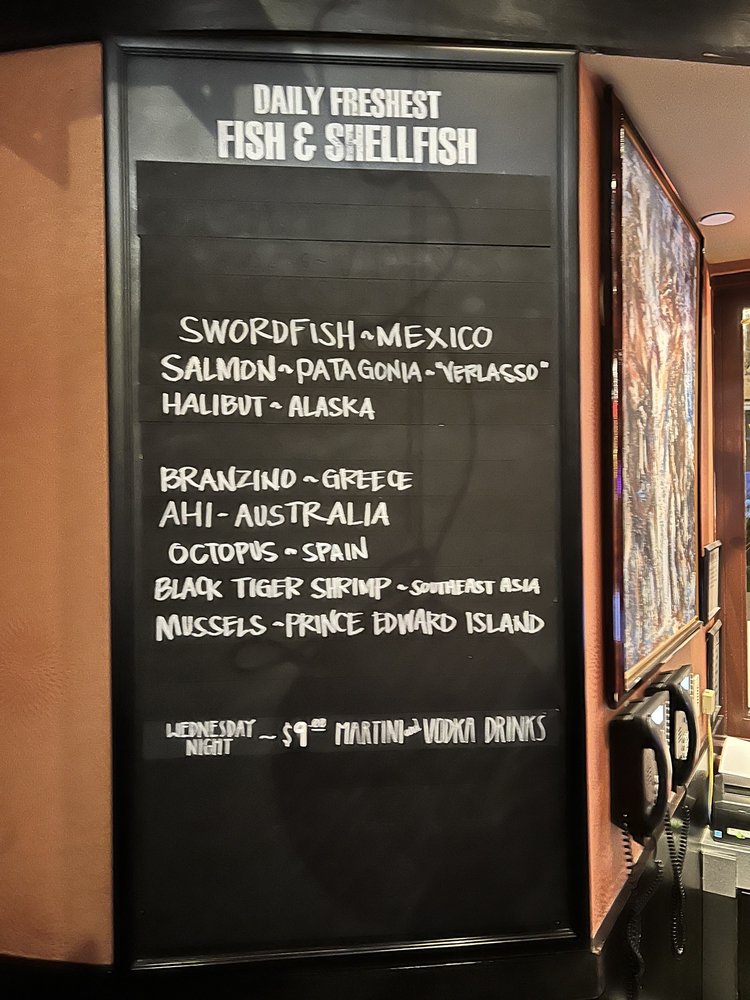 DAILY FRESHEST
FISH & SHELLFISH
SWORDFISH ~ MEXICO
SALMON ~ PATAGONIA ~ "VERLASSO"
HALIBUT ~ ALASKA
BRANZINO ~ GREECE
AHI - AUSTRALIA
OCTOPUS ~ SPAIN
BLACK TIGER SHRIMP ~ SOUTHEAST ASIA
MUSSELS ~ PRINCE EDWARD ISLAND
WEDNESDAY NIGHT ~ $9.00 MARTINI & VODKA DRINKS